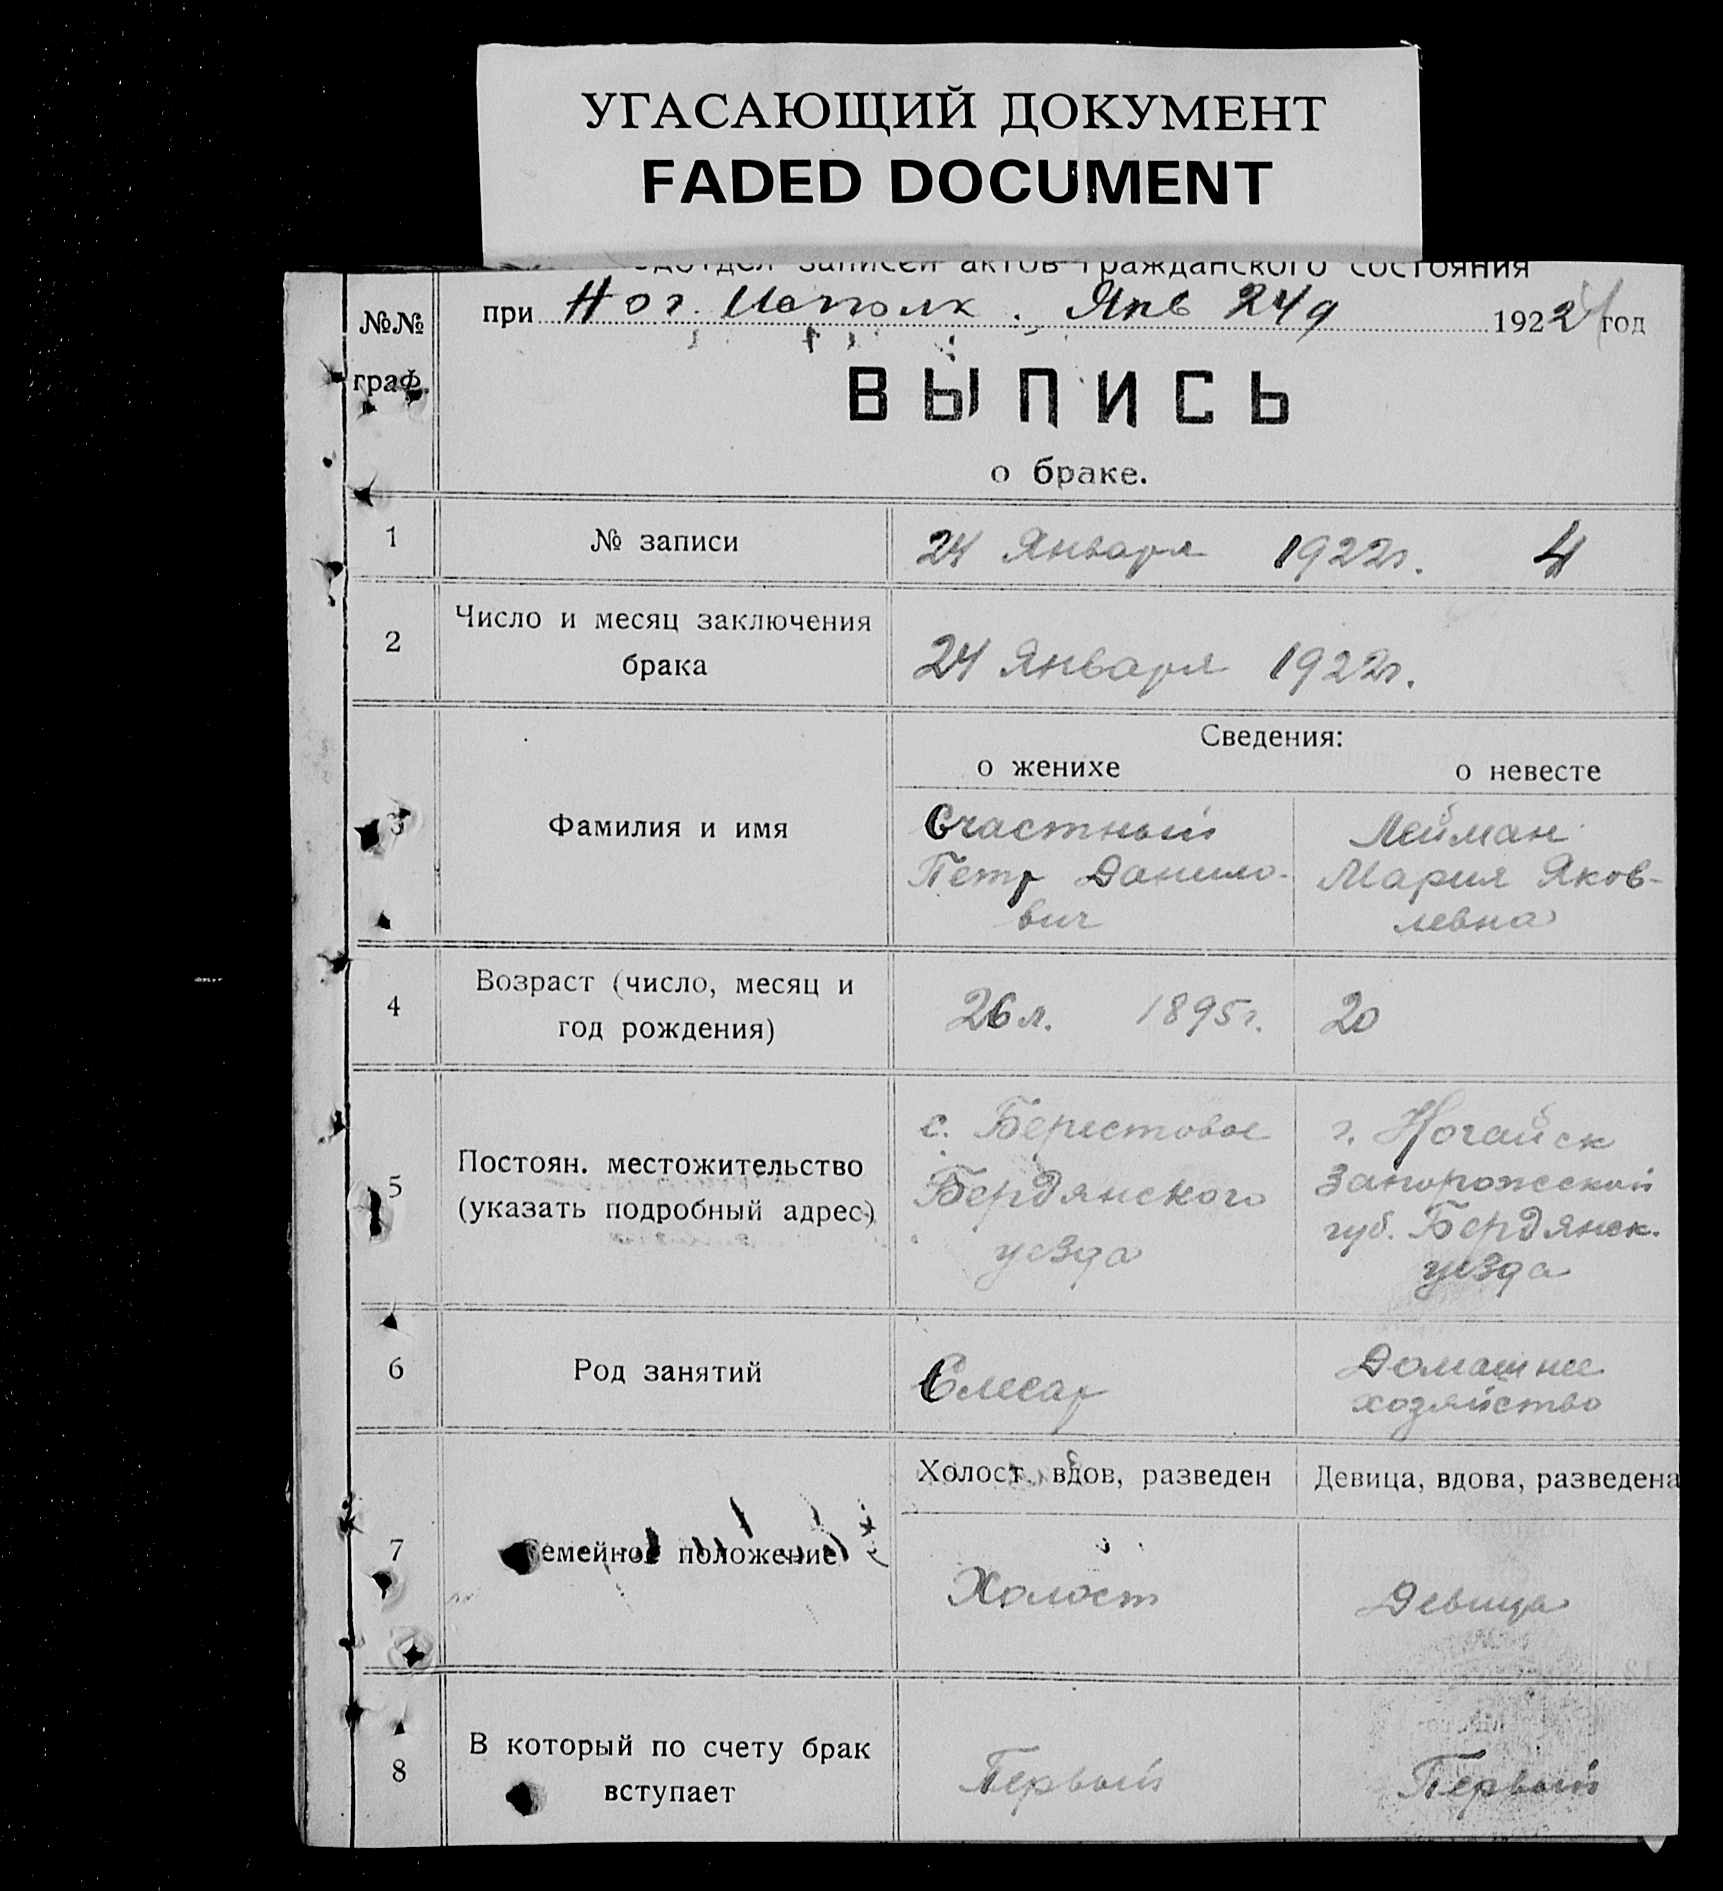 УГАСАЮЩИЙ ДОКУМЕНТ
FADED DOCUMENT
одотдел записей актов гражданского состояния
№№
граф.
при Ног. Исполк. Янв 24д 1922 год
ВЫПИСЬ
о браке.
1 № записи 24 Января 1922г. 4
2 Число и месяц заключения
брака
24 Января 1922г.
Сведения:
о женихе о невесте
3 Фамилия и имя
Счастный
Петр Данило-
вич
Лейман
Мария Яков-
левна
4 Возраст (число, месяц и
год рождения)
26 л. 1895г. 20
5 Постоян. местожительство
(указать подробный адрес)
с. Берестовое
Бердянского
уезда
г. Ногайск
Запорожской
губ. Бердянск.
уезда
6 Род занятий
Слесар
Домашнее
хозяйство
7 Семейное положение
Холост, вдов, разведен
Девица, вдова, разведена
Холост
Девица
8 В который по счету брак
вступает
Первый
Первый